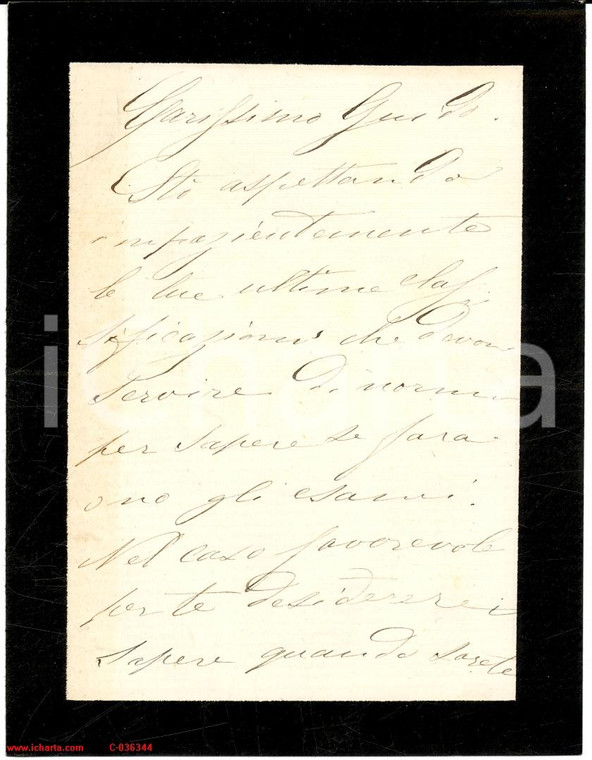 Carissimo Guido.
Stò aspettando
impazientemente
le tue ultime clas
sificazioni che devon
servire di norma
per sapere se farai
o no gli esami.
Nel caso favorevole
per te desidererei
sapere quando sarete
icharta
www.icharta.com C-036344